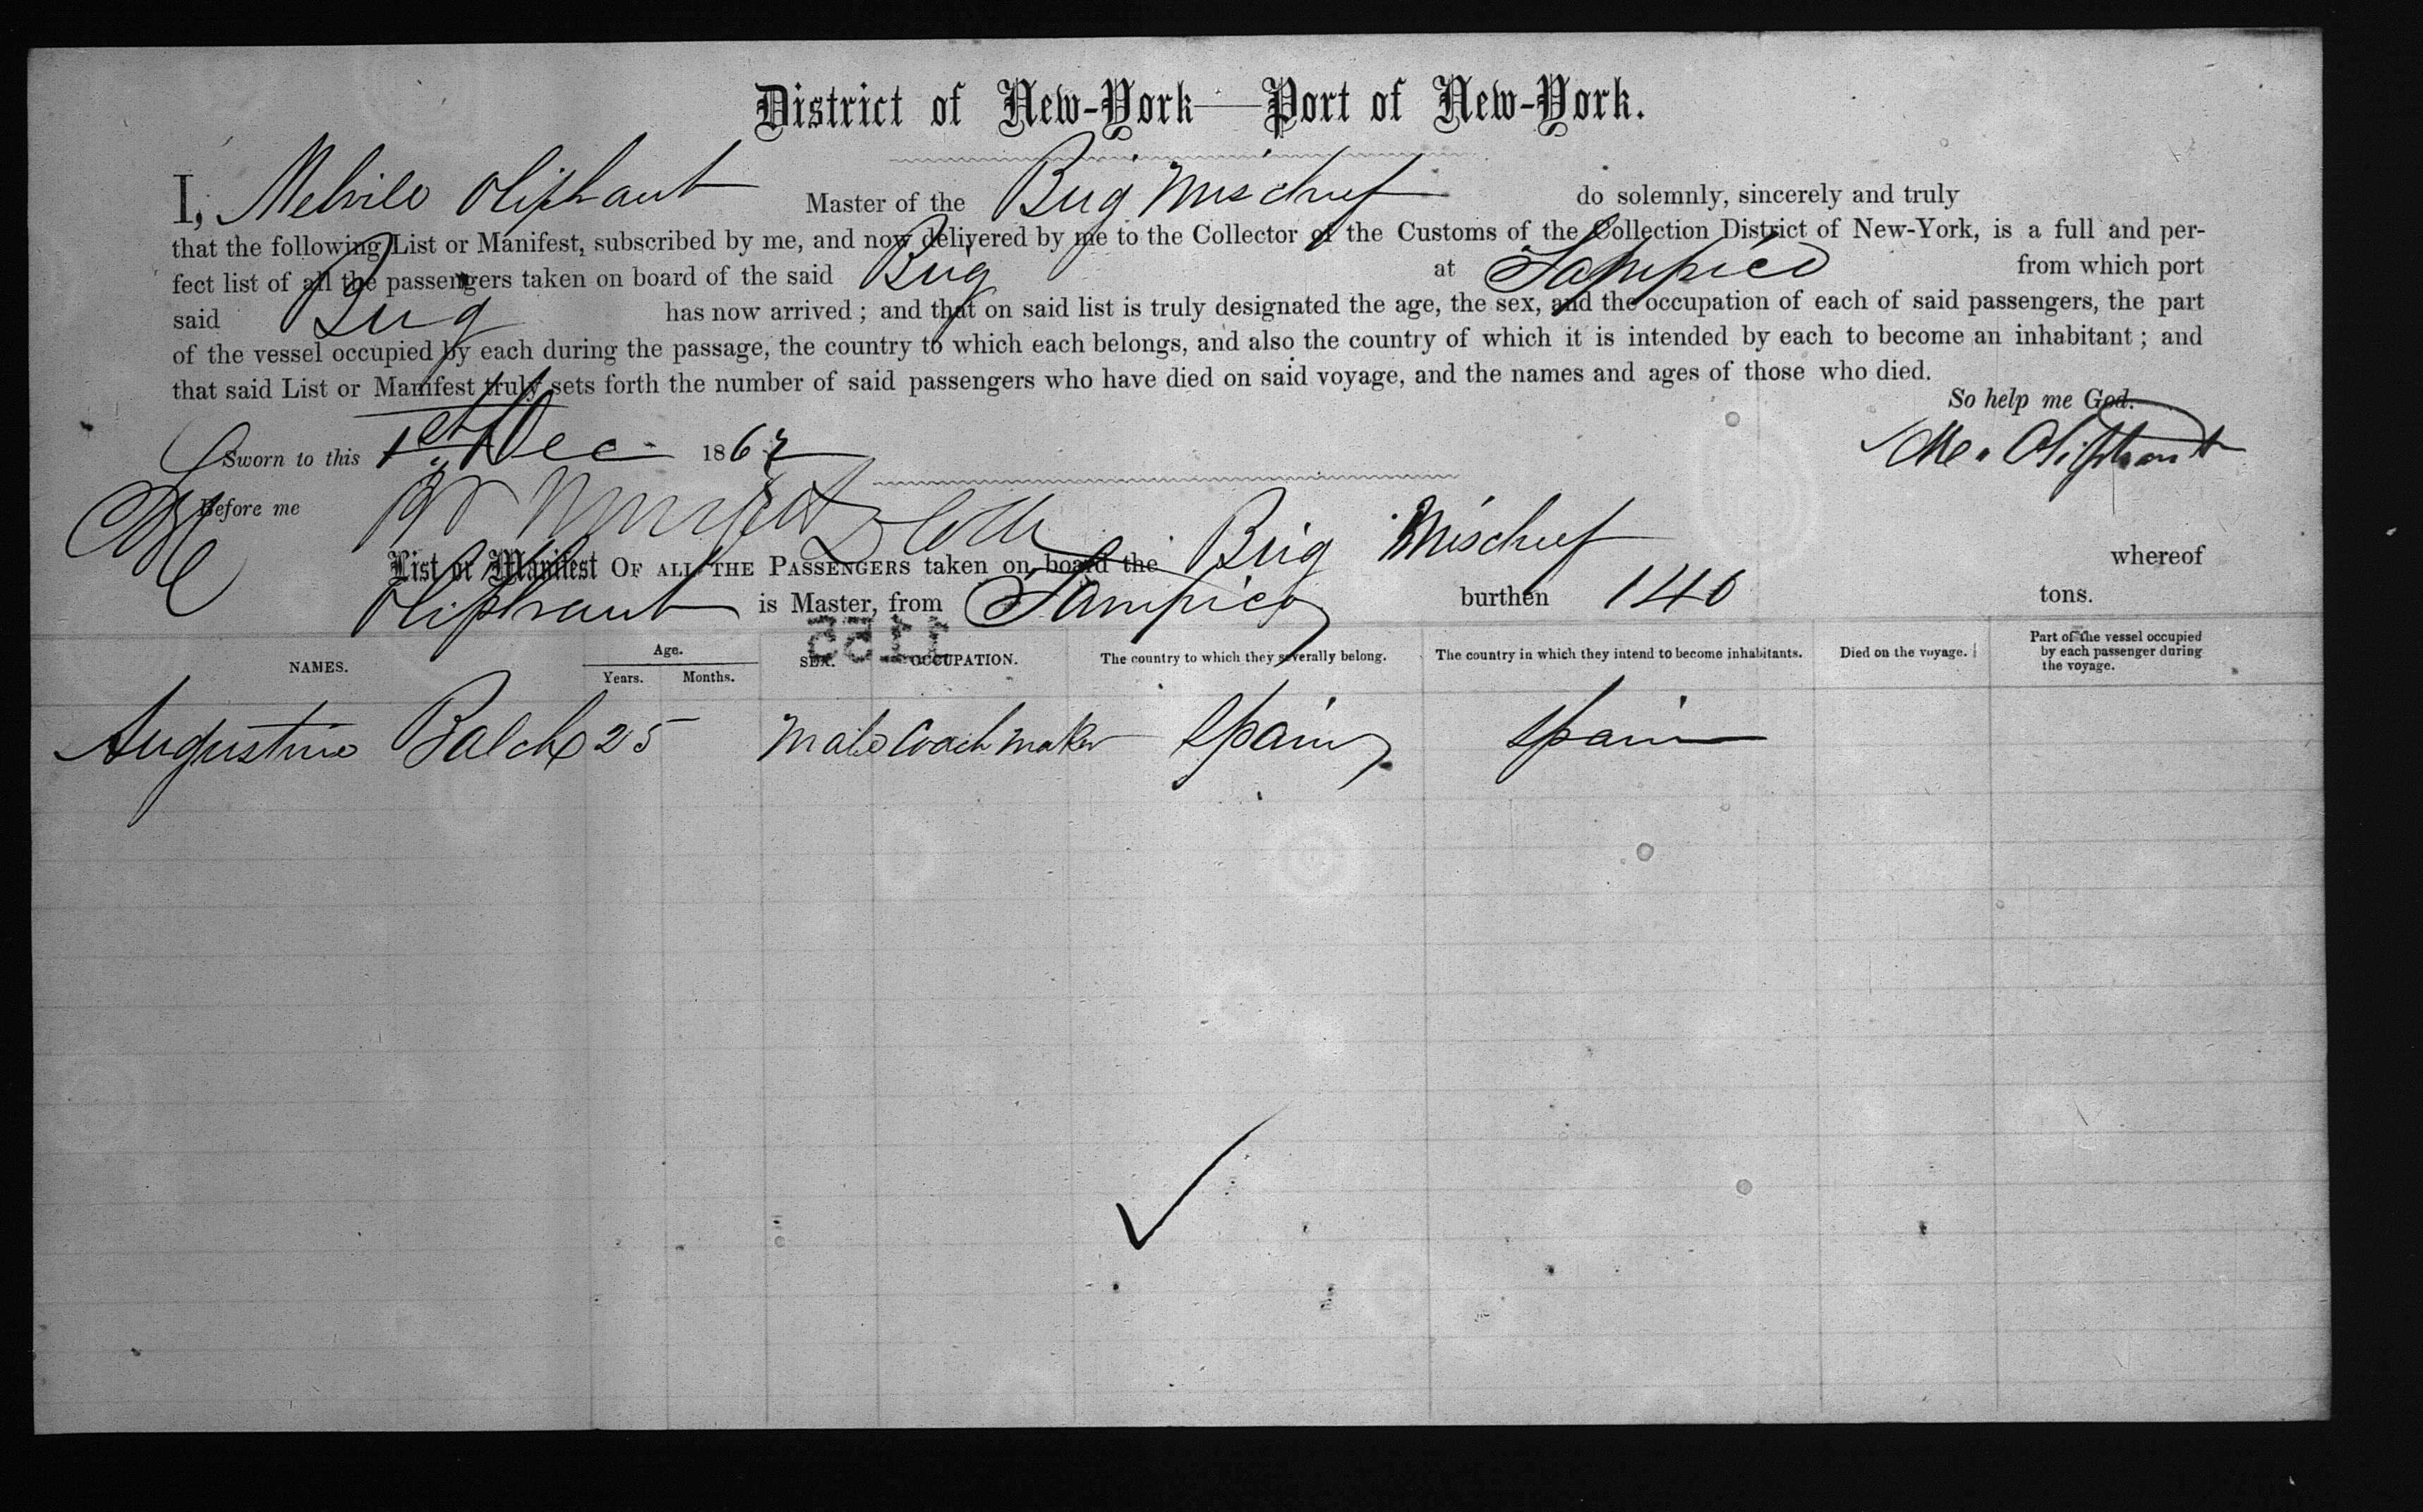 District of New-York—Port of New-York.
I, Melvile Oliphant Master of the Brig Mischief do solemnly, sincerely and truly
that the following List or Manifest, subscribed by me, and now delivered by me to the Collector of the Customs of the Collection District of New-York, is a full and per-
fect list of all the passengers taken on board of the said Brig at Tampico from which port
said Brig has now arrived; and that on said list is truly designated the age, the sex, and the occupation of each of said passengers, the part
of the vessel occupied by each during the passage, the country to which each belongs, and also the country of which it is intended by each to become an inhabitant; and
that said List or Manifest truly sets forth the number of said passengers who have died on said voyage, and the names and ages of those who died.
So help me God.
Sworn to this 1st Dec 186 Oliphant
Before me
List or Manifest OF ALL THE PASSENGERS taken on board the Brig Mischief whereof
Oliphant is Master, from Tampico burthen 140 tons.
1155
NAMES. Age. Years. Months. SEX. OCCUPATION. The country to which they severally belong. The country in which they intend to become inhabitants. Died on the voyage. Part of the vessel occupied by each passenger during the voyage.
Augustine Balch 25 Male Coach maker Spain Spain